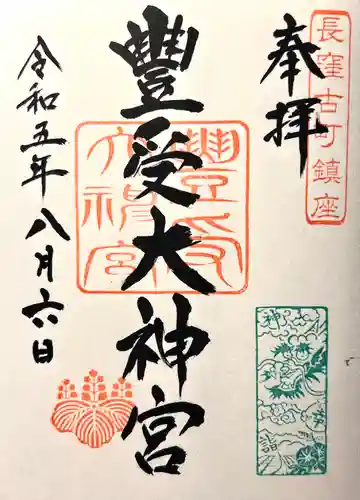 長窪古町鎮座
奉拝
豐受大神宮
豐受大神宮
令和五年八月六日